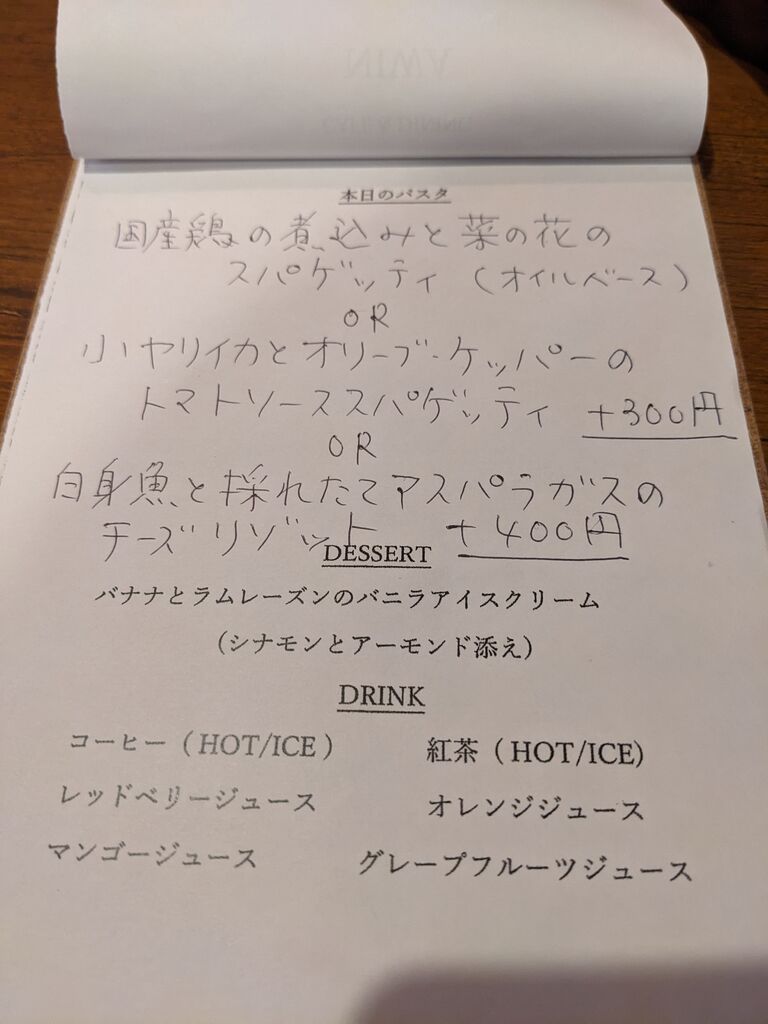 本日のパスタ
国産鶏の煮込みと菜の花の
スパゲッティ（オイルベース）
OR
小ヤリイカとオリーブ・ケッパーの
トマトソーススパゲッティ +300円
OR
白身魚と採れたてアスパラガスの
チーズリゾット +400円
DESSERT
バナナとラムレーズンのバニラアイスクリーム
（シナモンとアーモンド添え）
DRINK
コーヒー（HOT/ICE） 紅茶（HOT/ICE）
レッドベリージュース オレンジジュース
マンゴージュース グレープフルーツジュース